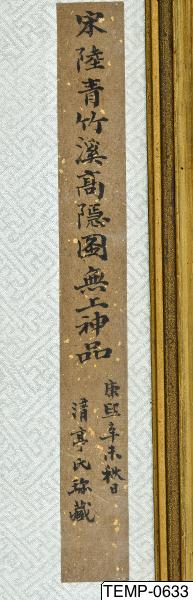 宋陸青竹溪高隱圖無上神品
康熙辛未秋日
清亭氏珍藏
TEMP-0633